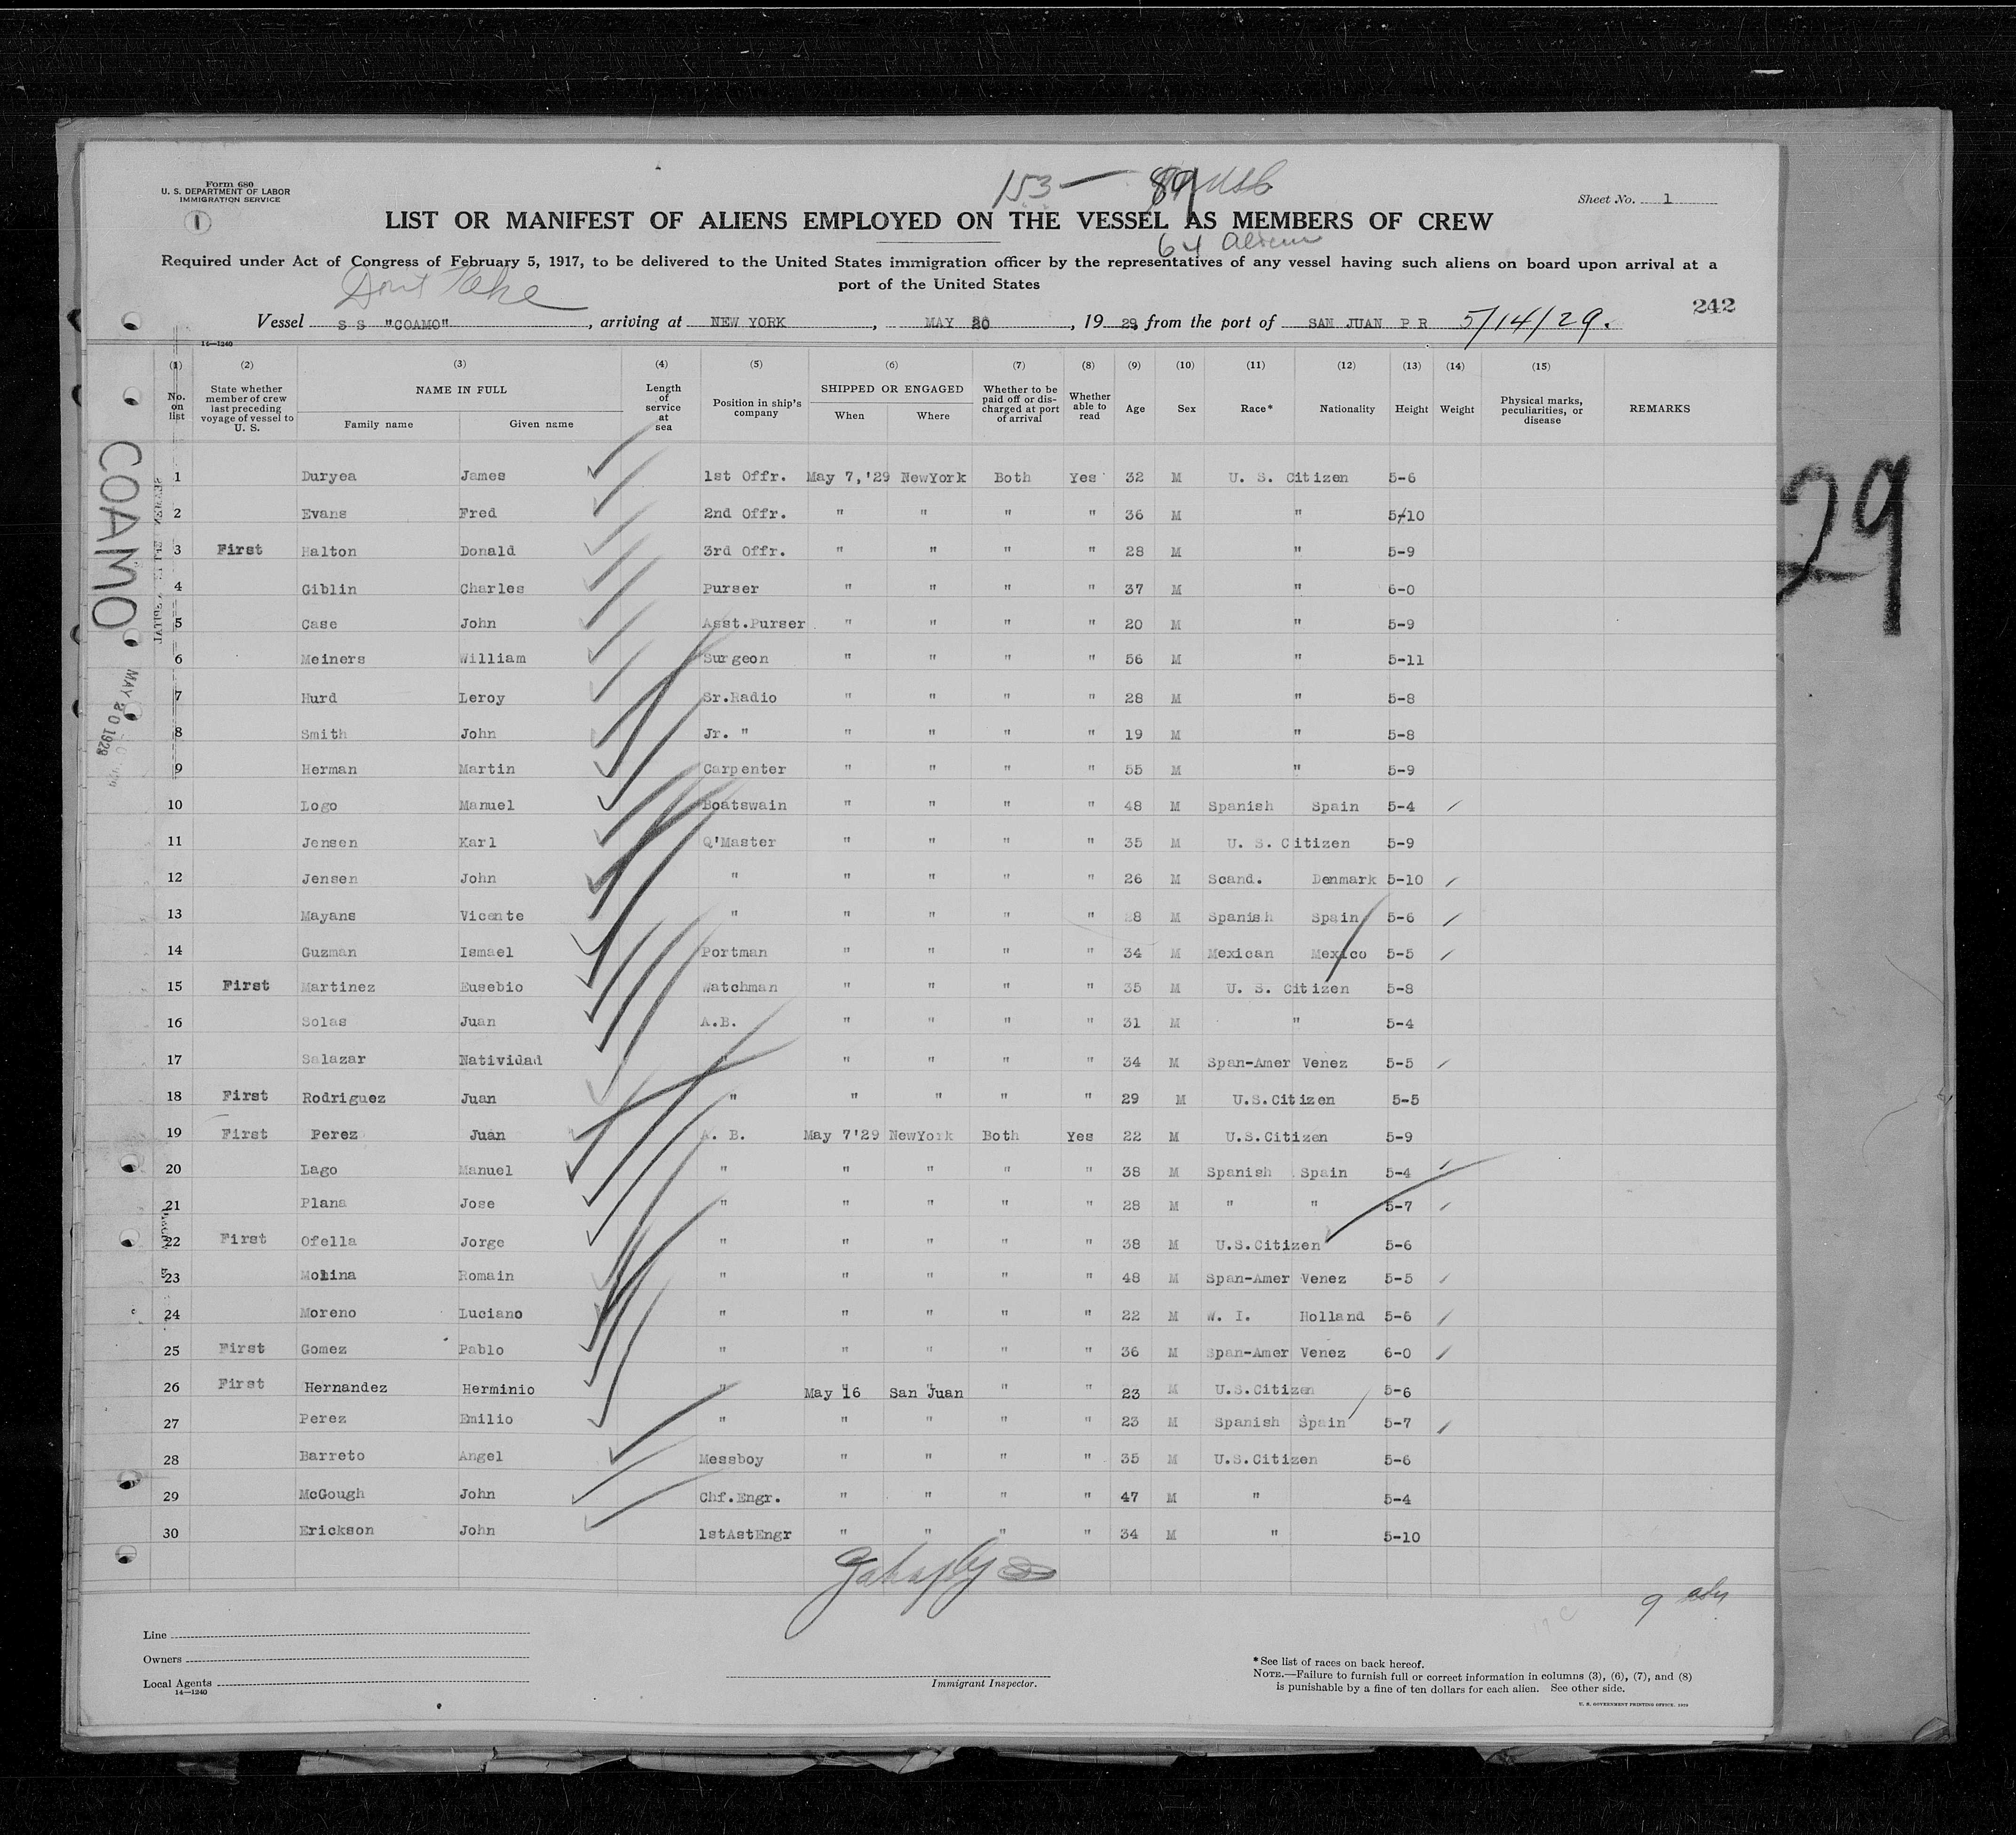 153 — 89 USC
Form 680
U. S. DEPARTMENT OF LABOR
IMMIGRATION SERVICE
1
Sheet No. 1
LIST OR MANIFEST OF ALIENS EMPLOYED ON THE VESSEL AS MEMBERS OF CREW
64 Aliens
Required under Act of Congress of February 5, 1917, to be delivered to the United States immigration officer by the representatives of any vessel having such aliens on board upon arrival at a
port of the United States
Dont Take
242
Vessel S S "COAMO", arriving at NEW YORK, MAY 20, 1929, from the port of SAN JUAN P R 5/14/29.
14—1240
(1) (2) (3) (4) (5) (6) (7) (8) (9) (10) (11) (12) (13) (14) (15)
No. on list State whether member of crew last preceding voyage of vessel to U. S. NAME IN FULL Length of service at sea Position in ship's company SHIPPED OR ENGAGED Whether to be paid off or discharged at port of arrival Whether able to read Age Sex Race* Nationality Height Weight Physical marks, peculiarities, or disease REMARKS
Family name Given name When Where
1 Duryea James 1st Offr. May 7,'29 NewYork Both Yes 32 M U. S. Citizen 5-6
2 Evans Fred 2nd Offr. " " " " 36 M " 5-10
3 First Halton Donald 3rd Offr. " " " " 28 M " 5-9
4 Giblin Charles Purser " " " " 37 M " 6-0
5 Case John Asst.Purser " " " " 20 M " 5-9
6 Meiners William Surgeon " " " " 56 M " 5-11
7 Hurd Leroy Sr.Radio " " " " 28 M " 5-8
8 Smith John Jr. " " " " " 19 M " 5-8
9 Herman Martin Carpenter " " " " 55 M " 5-9
10 Logo Manuel Boatswain " " " " 48 M Spanish Spain 5-4
11 Jensen Karl Q'Master " " " " 35 M U. S. Citizen 5-9
12 Jensen John " " " " " 26 M Scand. Denmark 5-10
13 Mayans Vicente " " " " " 28 M Spanish Spain 5-6
14 Guzman Ismael Portman " " " " 34 M Mexican Mexico 5-5
15 First Martinez Eusebio Watchman " " " " 35 M U. S. Citizen 5-8
16 Solas Juan A.B. " " " " 31 M " 5-4
17 Salazar Natividad " " " " " 34 M Span-Amer Venez 5-5
18 First Rodriguez Juan " " " " " 29 M U.S.Citizen 5-5
19 First Perez Juan A. B. May 7'29 NewYork Both Yes 22 M U.S.Citizen 5-9
20 Lago Manuel " " " " " 38 M Spanish Spain 5-4
21 Plana Jose " " " " " 28 M " " 5-7
22 First Ofella Jorge " " " " " 38 M U.S.Citizen 5-6
23 Molina Romain " " " " " 48 M Span-Amer Venez 5-5
24 Moreno Luciano " " " " " 22 M W. I. Holland 5-6
25 First Gomez Pablo " " " " " 36 M Span-Amer Venez 6-0
26 First Hernandez Herminio " May 16 San Juan " " 23 M U.S.Citizen 5-6
27 Perez Emilio " " " " " 23 M Spanish Spain 5-7
28 Barreto Angel Messboy " " " " 35 M U.S.Citizen 5-6
29 McGough John Chf.Engr. " " " " 47 M " 5-4
30 Erickson John 1stAstEngr " " " " 34 M " 5-10
COAMO
MAY 20 1929
29
9
Line
Owners
Local Agents
14—1240
Immigrant Inspector.
*See list of races on back hereof.
NOTE.—Failure to furnish full or correct information in columns (3), (6), (7), and (8)
is punishable by a fine of ten dollars for each alien. See other side.
U. S. GOVERNMENT PRINTING OFFICE. 1929